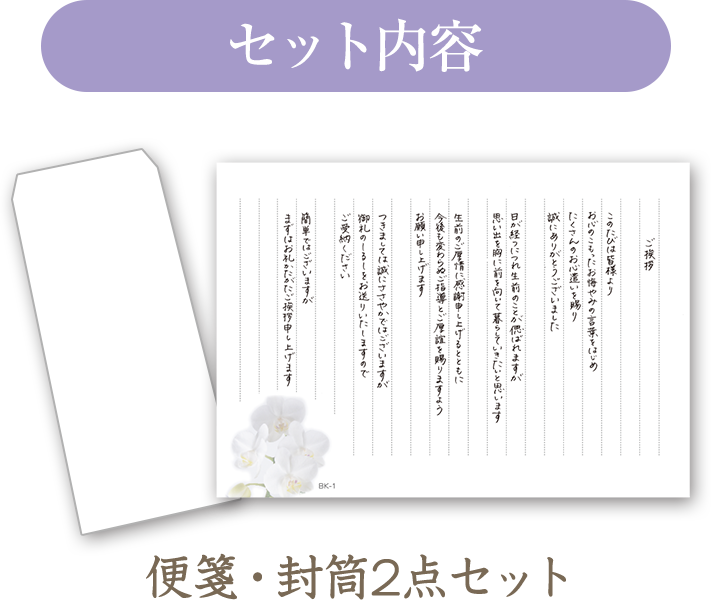 セット内容
ご挨拶
このたびは皆様より
お心のこもったお悔やみの言葉をはじめ
たくさんのお心遣いを賜り
誠にありがとうございました
日が経つにつれ生前のことが偲ばれますが
思い出を胸に前を向いて暮らしていきたいと思います
生前のご厚情に感謝申し上げるとともに
今後も変わらぬご指導とご厚誼を賜りますよう
お願い申し上げます
つきましては誠にささやかではございますが
御礼のしるしをお送りいたしますので
ご受納ください
簡単ではございますが
まずはお礼かたがたご挨拶申し上げます
BK-1
便箋・封筒2点セット